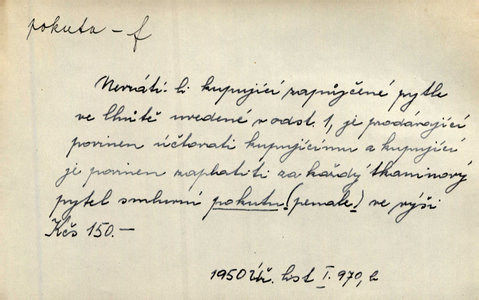 pokuta – f
Nevrátí-li kupující zapůjčené pytle
ve lhůtě uvedené v odst. 1, je prodávající
povinen účtovati kupujícímu a kupující
je povinen zaplatiti za každý tkaninový
pytel smluvní pokutu (penale) ve výši
Kčs 150.—
1950 I. 970, b